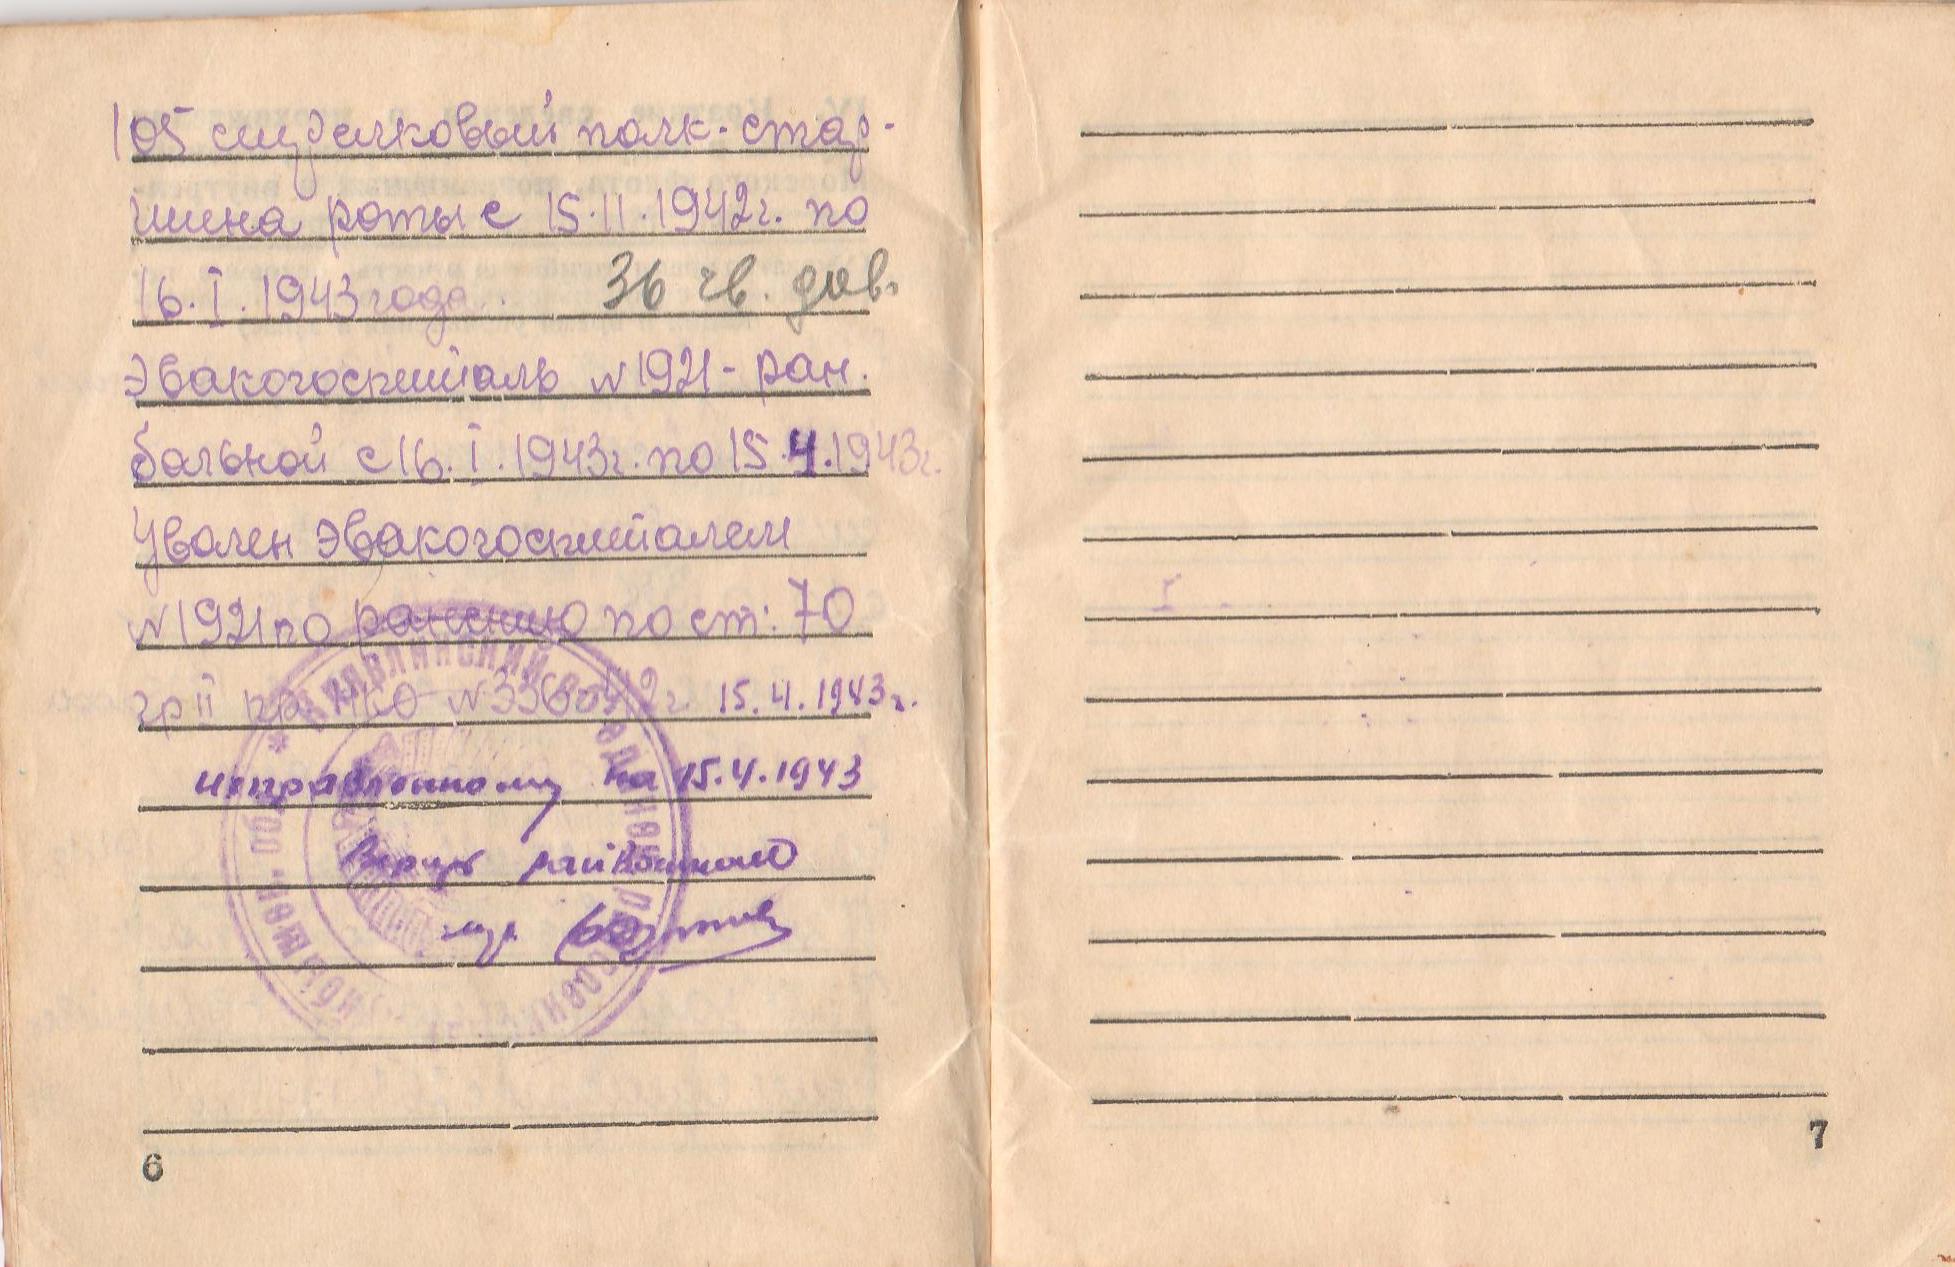 105 стрелковый полк-стар-
шина роты с 15.11.1942г. по
16.I.1943 года.. 36 гв. див.
Эвакогоспиталь №1921-ран.
больной с 16.I.1943г. по 15.4.1943г.
Уволен Эвакогоспиталем
№1921 по ранению по ст: 70
гр II пр. НКО №336 42г. 15.4.1943г.
исправленному на 15.4.1943
Верить райвоенком
6
7